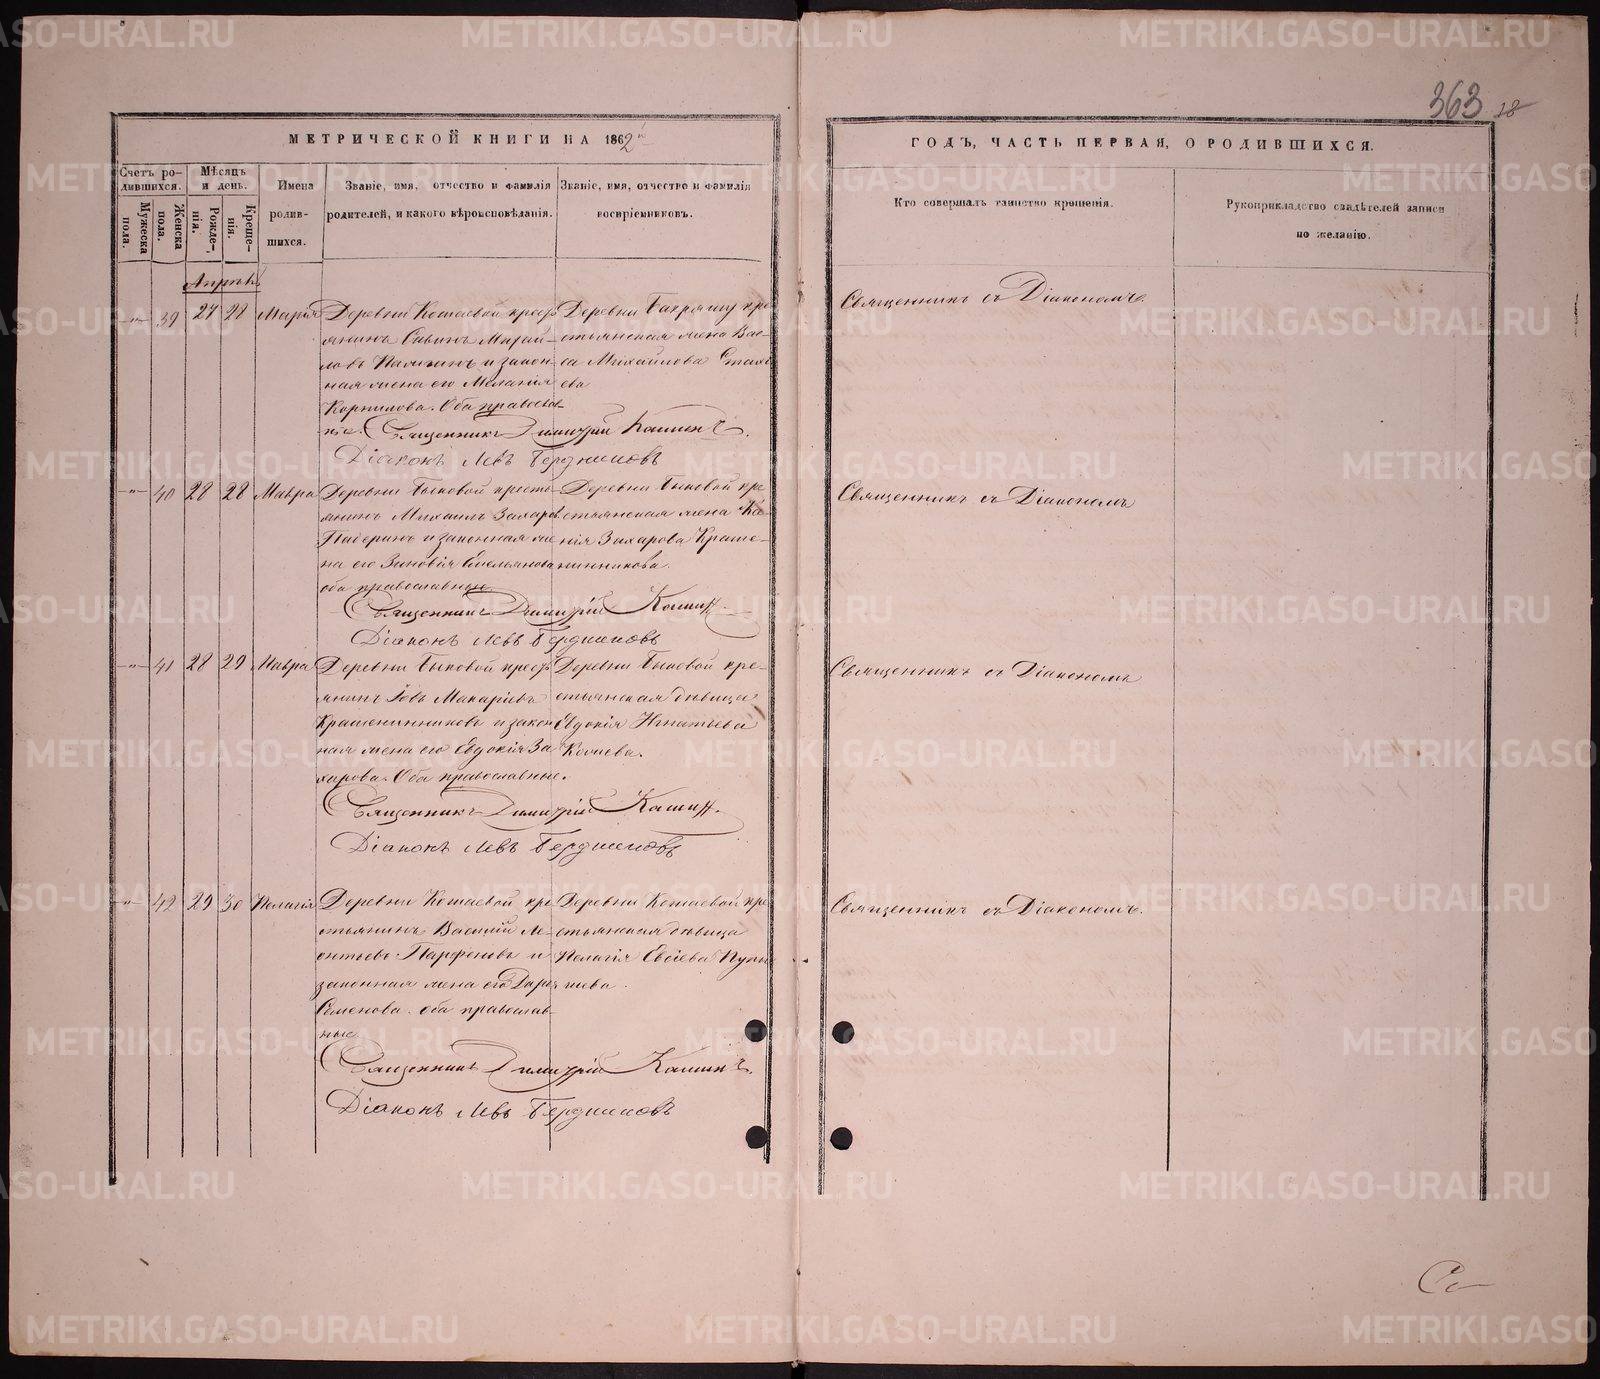 363 18
МЕТРИЧЕСКОЙ КНИГИ НА 1862й
ГОДЪ, ЧАСТЬ ПЕРВАЯ, О РОДИВШИХСЯ.
Счетъ родившихся.
Мужеска пола.
Женска пола.
Мѣсяцъ и день.
Рожденія.
Крещенія.
Имена родившихся.
Званіе, имя, отчество и фамилія родителей, и какого вѣроисповѣданія.
Званіе, имя, отчество и фамилія воспріемниковъ.
Кто совершалъ таинство крещенія.
Рукоприкладство свидѣтелей записи по желанію.
Апрѣль
39 27 28 Марія
Деревни Кошаевой крестьянинъ
Савинъ Михайловъ
и законная жена его Меланія
Корнилова. Оба православные.
крестьянская жена Васса Михайлова
Священникъ съ Діакономъ
Священникъ Димитрій Кашинъ.
Діаконъ Левъ Бердниковъ
40 28 28 Мавра
Деревни Быковой крестьянинъ
Михаилъ Захаровъ
Падеринъ и законная жена
его Зиновія Емельянова
оба православные
Деревни Быковой крестьянская жена
Захарова Крашенинникова.
Священникъ съ Діакономъ
Священникъ Димитрій Кашинъ
Діаконъ Левъ Бердниковъ
41 28 29 Мавра
Деревни Быковой крестьянинъ
Іовъ Макаріевъ
Крашенинниковъ и законная
жена его Евдокія Захарова.
Оба православные.
Деревни Быковой крестьянская дѣвица
Евдокія Игнатьева
Священникъ съ Діакономъ
Священникъ Димитрій Кашинъ.
Діаконъ Левъ Бердниковъ
42 29 30 Пелагія
Деревни Кошаевой крестьянинъ
Василій Леонтьевъ
Парфеновъ и
законная жена его Дарья
Семенова. оба православные.
Деревни Кошаевой крестьянская дѣвица
Пелагія
Священникъ съ Діакономъ.
Священникъ Димитрій Кашинъ.
Діаконъ Левъ Бердниковъ
METRIKI.GASO-URAL.RU